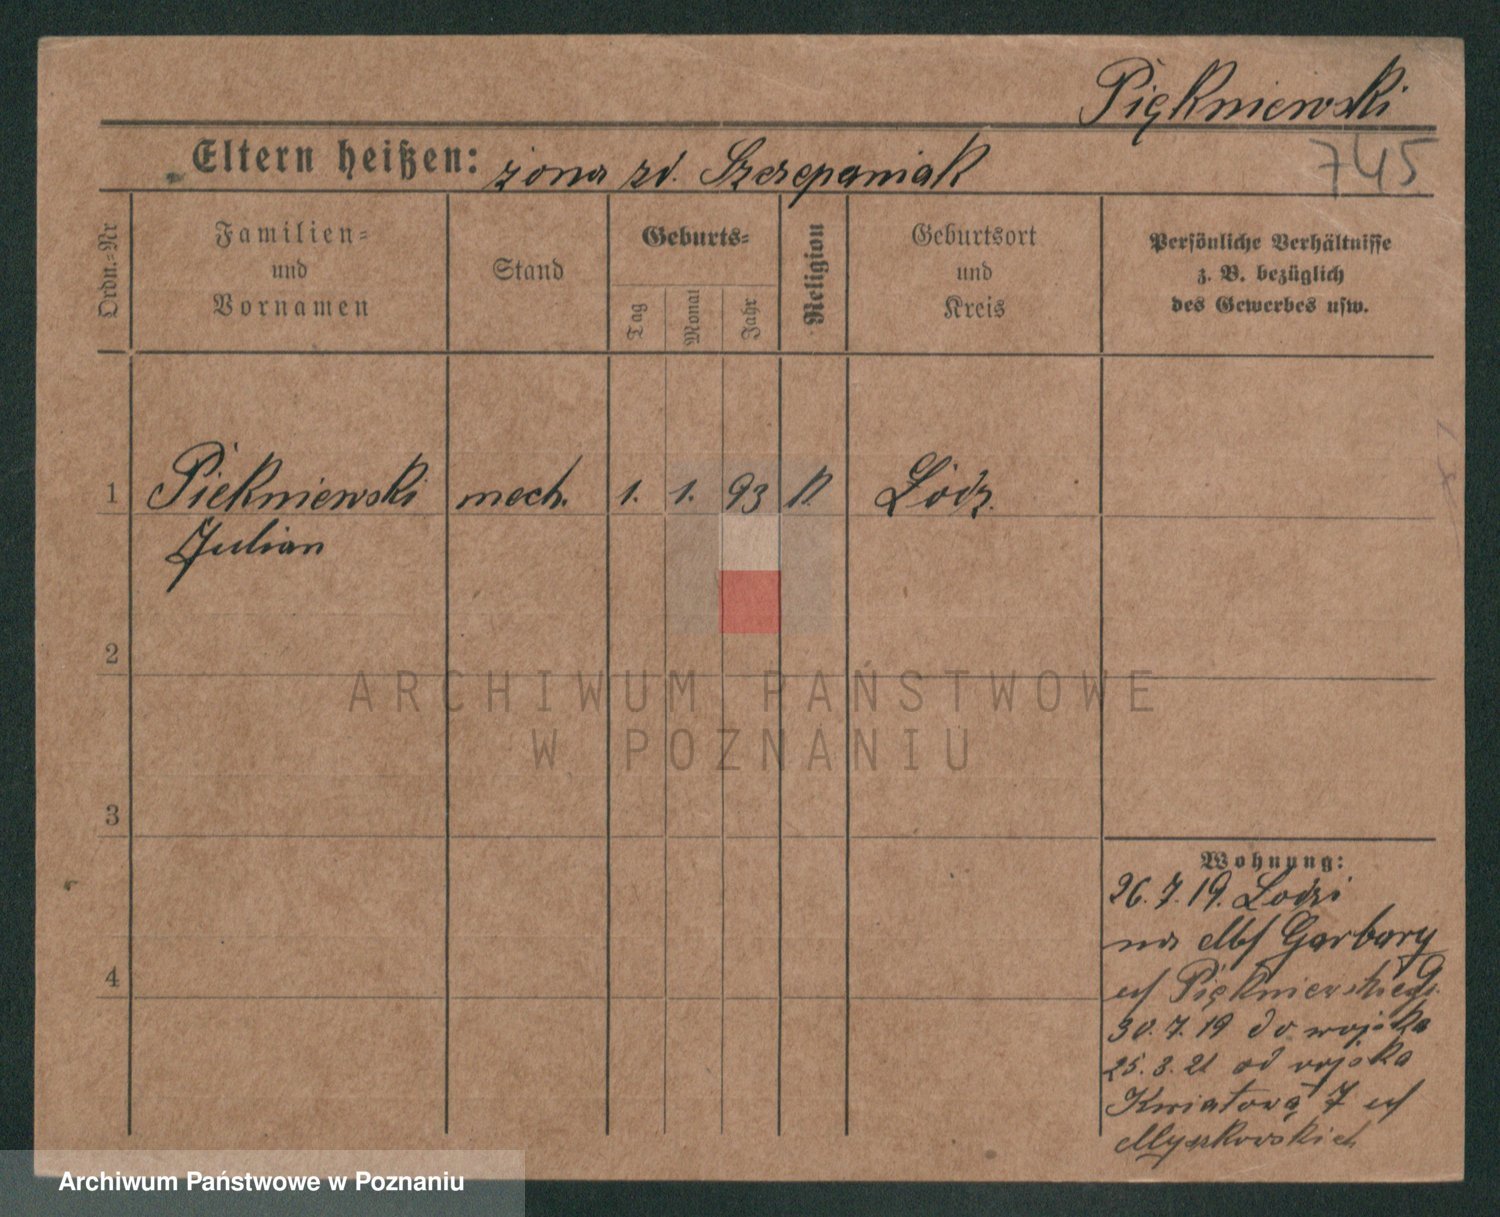 Piękniewski
Eltern heißen: żona zd. Szczepaniak
745
Ordn.-Nr
Familien-
und
Vornamen
Stand
Geburts-
Tag
Monat
Jahr
Religion
Geburtsort
und
Kreis
Persönliche Verhältnisse
z. B. bezüglich
des Gewerbes usw.
1 Piekniewski mech. 1. 1. 93 k. Łódz.
Julian
2
ARCHIWUM PAŃSTWOWE
W POZNANIU
3
4
Wohnung:
26.7.19. Lodzi
na Garbary
Piękniewskiego.
30.7.19 do wojska
25.3.21 od wojska
Kwiatową 7
Myszkowskich
Archiwum Państwowe w Poznaniu